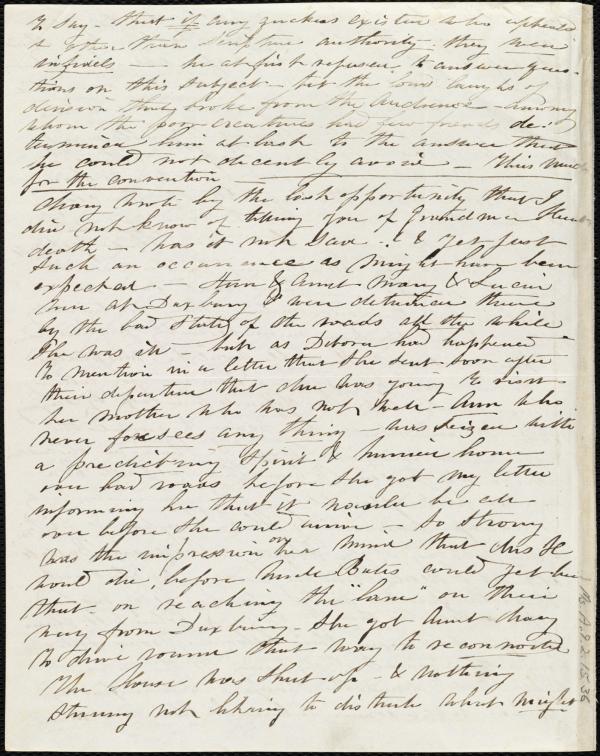 to say - that if any quakers existed who upheld
& other than scripture authority - they were
infidels - he at first refused to answer ques-
tions on this subject - but the loud laughs of
derision that broke from the audience - among
whom the poor creatures had few friends de-
termined him at last to the answer that
he could not decently avoid - This much
for the convention
Mary wrote by the last opportunity that I
did not know of telling you of Grandma
death - was it not sad . . & yet just
such an occurrence as might have been
expected - Ann & Aunt Mary & Lucia
were at Duxbury & were detained there
by the bad state of the roads all the while
she was ill - but as Debora had happened
to mention in a letter that she sent soon after
their departure that she was going to visit
her mother who was not well - Ann who
never foresees any thing - was seized with
a predicting spirit & hurried home
over bad roads before she got my letter
informing her that it would be all
over before she could arrive - So strong
was the impression on her mind that she
would die, before Uncle Bates could get her
that on reaching the "lane" on their
way from Duxbury - she got Aunt Mary
to drive round that way to reconnoitre
The House was shut up - & nothing
strung not liking to disturb what might
Ms. A.9.2.15.36